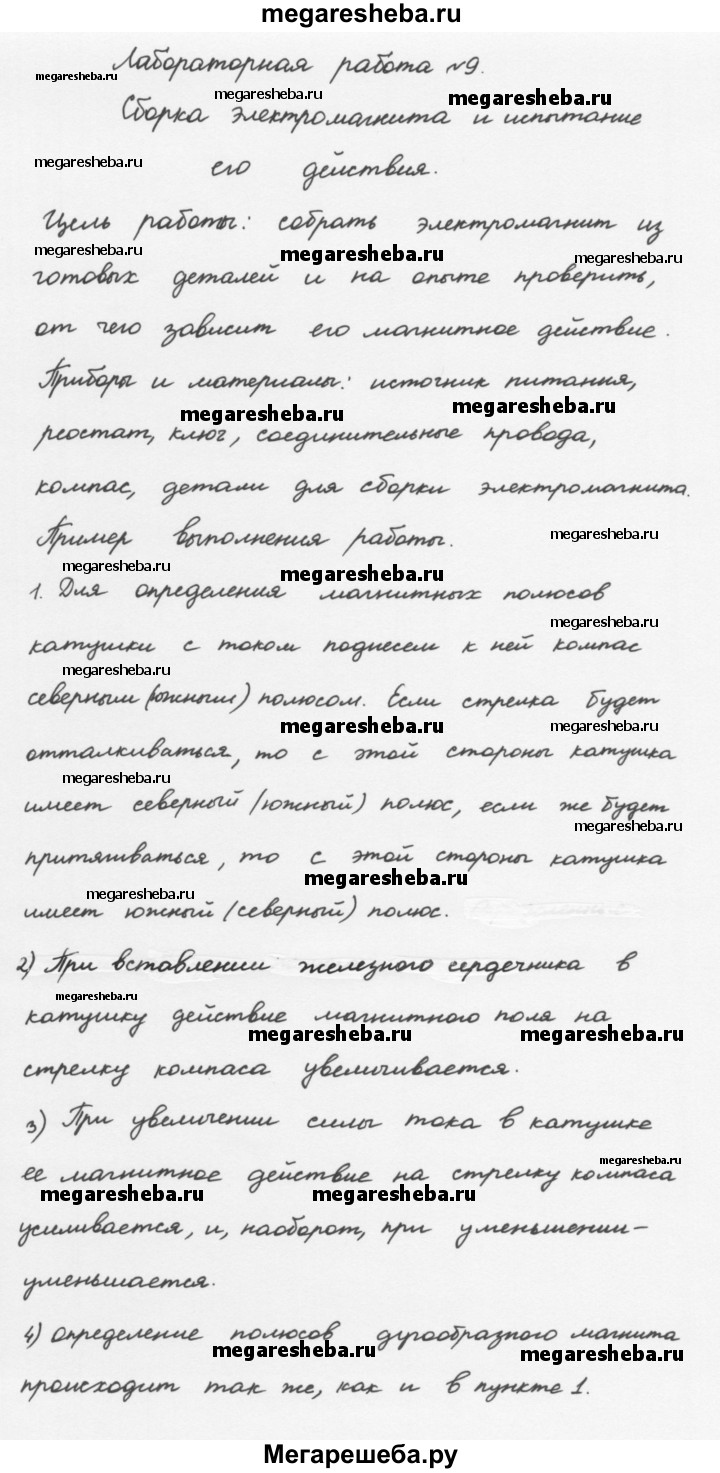 megaresheba.ru
Лабораторная работа №9.
megaresheba.ru
megaresheba.ru
megaresheba.ru
Сборка электромагнита и испытание
megaresheba.ru
его действия.
Цель работы: собрать электромагнит из
megaresheba.ru
megaresheba.ru
megaresheba.ru
готовых деталей и на опыте проверить,
от чего зависит его магнитное действие.
Приборы и материалы: источник питания,
megaresheba.ru
megaresheba.ru
реостат, ключ, соединительные провода,
компас, детали для сборки электромагнита.
Пример выполнения работы.
megaresheba.ru
megaresheba.ru
megaresheba.ru
1. Для определения магнитных полюсов
megaresheba.ru
катушки с током поднесем к ней компас
megaresheba.ru
северным (южным) полюсом. Если стрелка будет
megaresheba.ru
megaresheba.ru
отталкиваться, то с этой стороны катушка
megaresheba.ru
имеет северный (южный) полюс, если же будет
megaresheba.ru
притягиваться, то с этой стороны катушка
megaresheba.ru
megaresheba.ru
имеет южный (северный) полюс.
2) При вставлении железного сердечника в
megaresheba.ru
катушку действие магнитного поля на
megaresheba.ru
megaresheba.ru
стрелку компаса увеличивается.
3) При увеличении силы тока в катушке
megaresheba.ru
ее магнитное действие на стрелку компаса
megaresheba.ru
megaresheba.ru
усиливается, и, наоборот, при уменьшении-
уменьшается.
4) Определение полюсов дугообразного магнита
megaresheba.ru
megaresheba.ru
происходит так же, как и в пункте 1.
Мегарешеба.ру